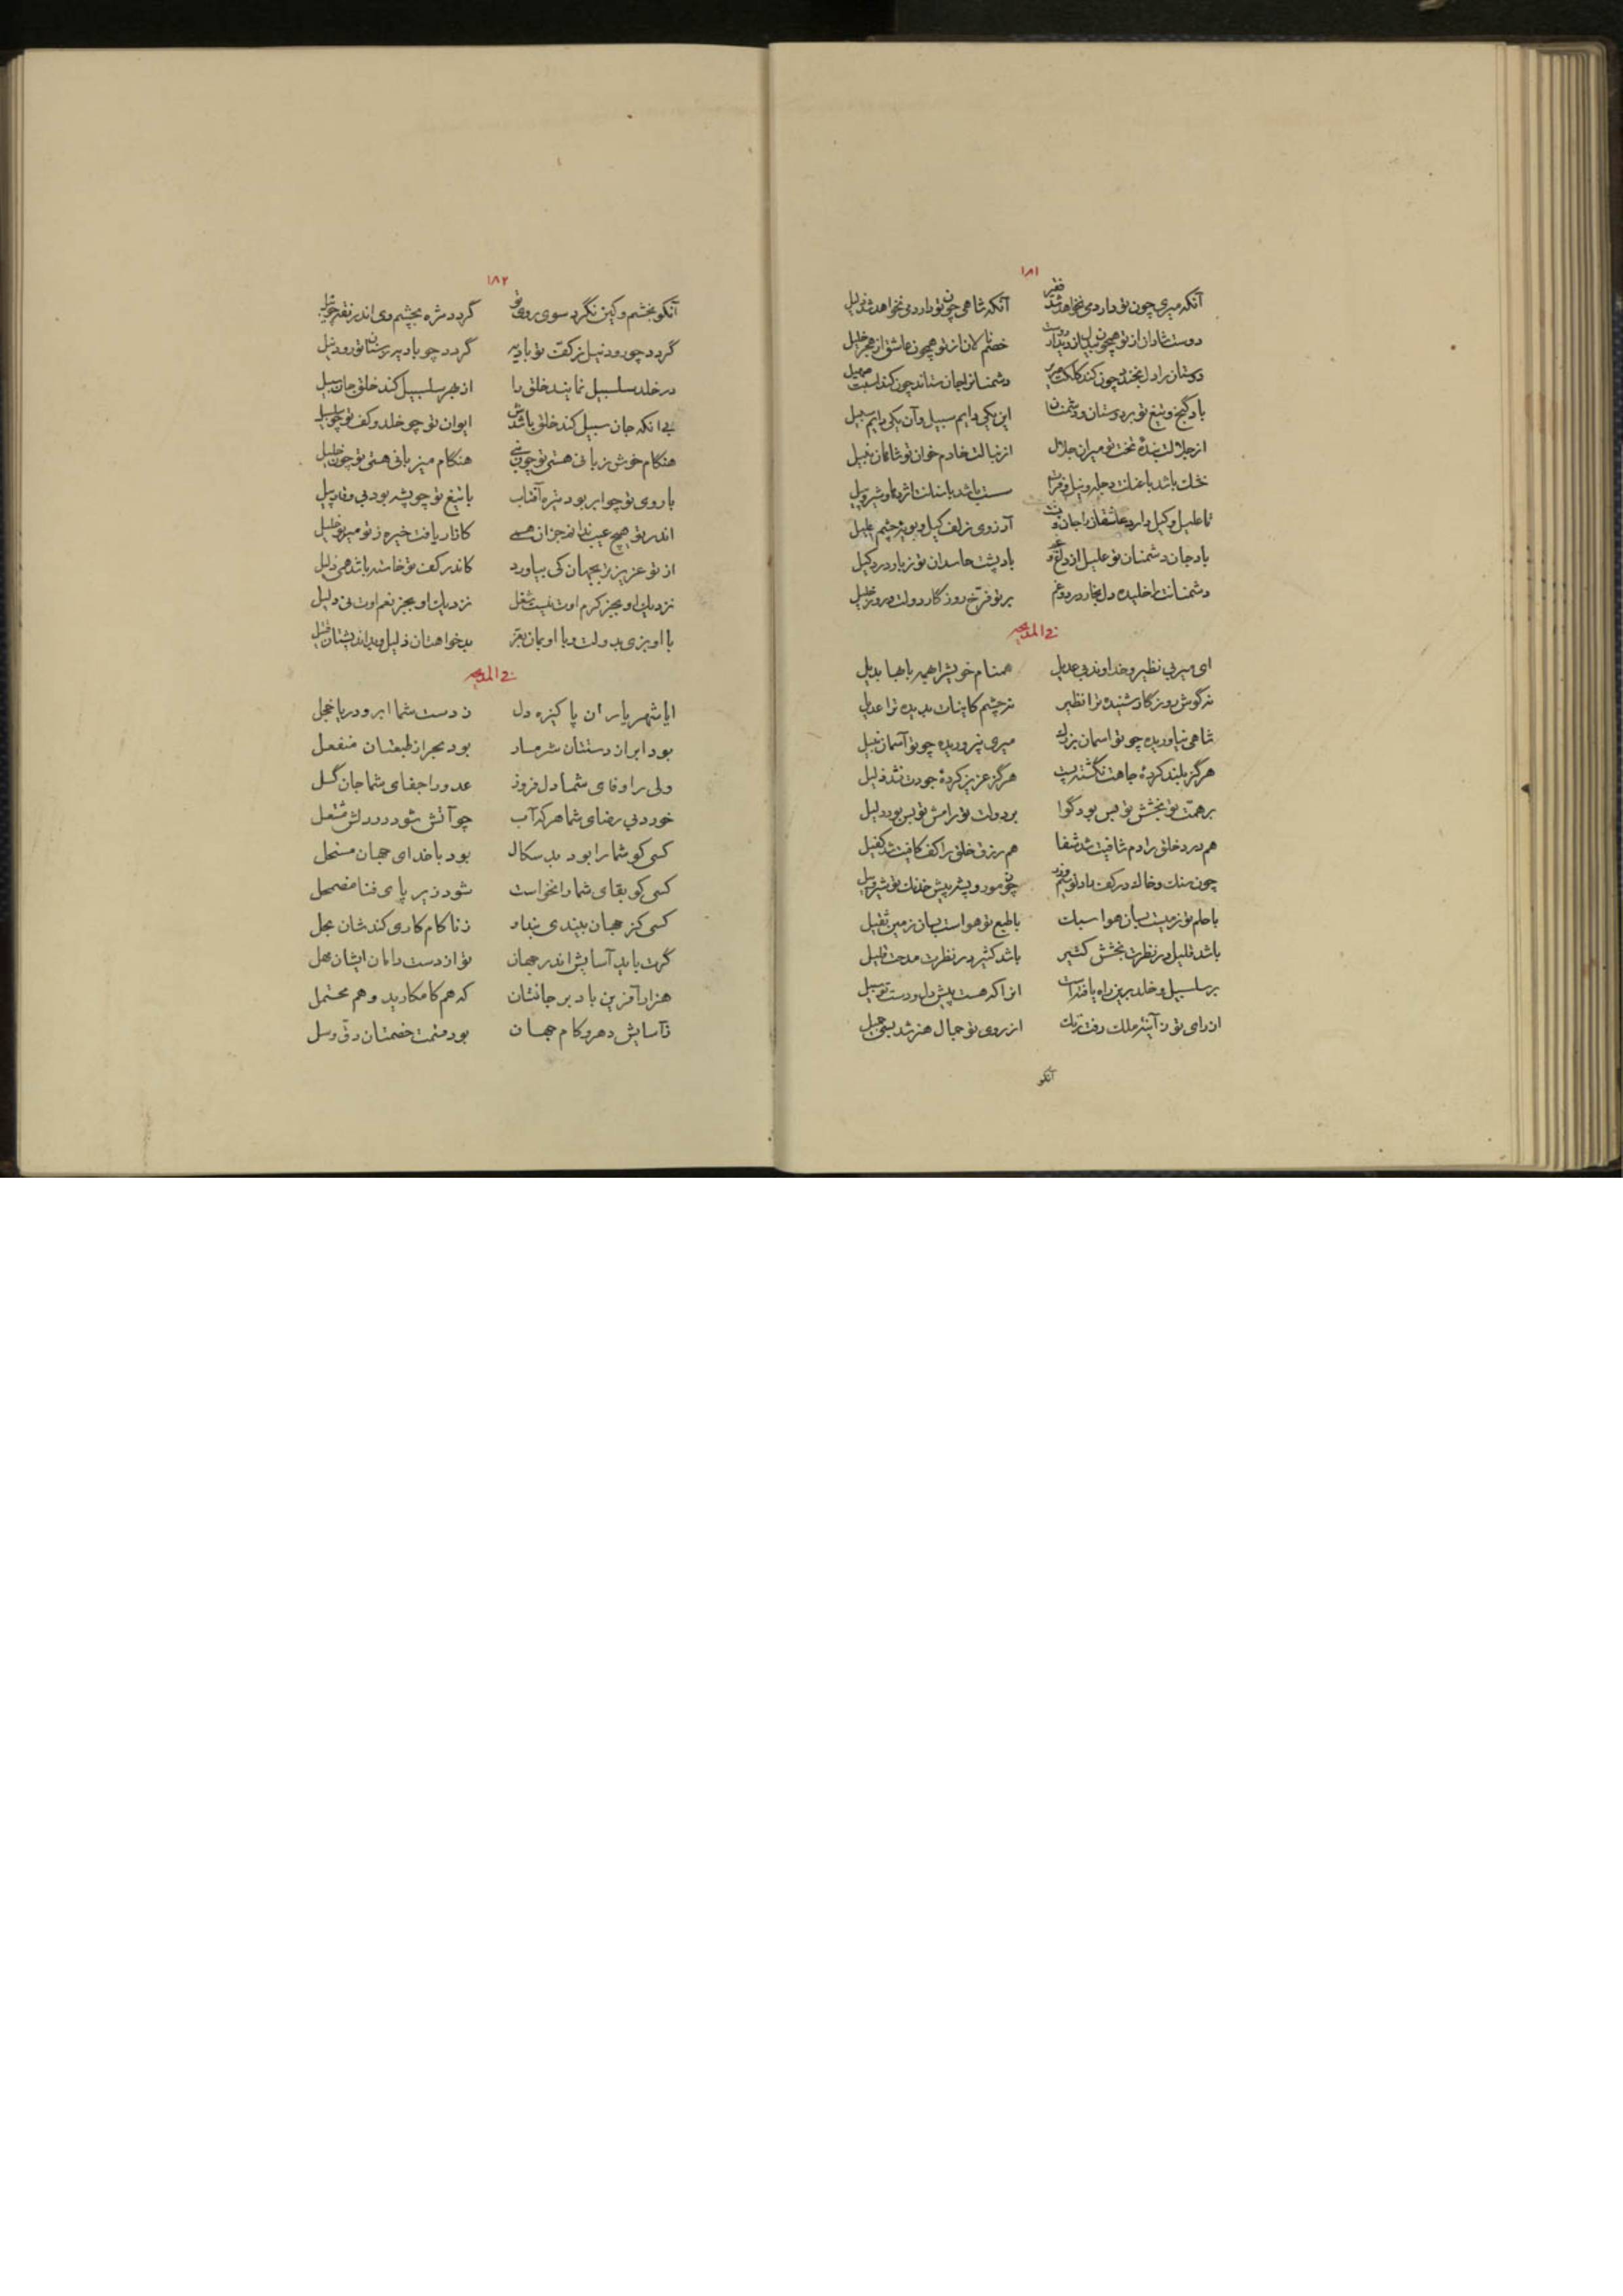 ۱۸۱
آنکه میری چون تو دارد می نخواهد شد فقیر آنکه شاهی چون تو دارد می نخواهد شد ذلیل
دوست شادان از تو همچون بیدلان از دیدار دوست خصم نالان از تو همچون عاشق از هجر خلیل
دوستان را دل بخندد چون کند کلکت صریر دشمنان را جان ستاند چون کند اسبت صهیل
باد گنج و تیغ تو بر دوستان و دشمنان این یکی دایم سبیل و آن یکی دایم سبیل
از جلالت بندۀ تخت تو میران جلال از نبالت خادم خوان تو شاهان نبیل
خشک باشد با عنانت دجله و نیل و فرات سست باشد با سنانت اژدها و شیر و پیل
تا علیل و کیل دارد عاشقان را جان و پشت آرزوی زلف کیل و بویۀ چشم علیل
باد جان دشمنان تو علیل از داغ و غم باد پشت حاسدان تو ز بار درد کیل
دشمنانت را خلیده دل بخار درد و غم بر تو فرخ روزگار دولت و روز خلیل
فی المدیحه
ای میر بی نظیر و خداوند بی عدیل همنام خویش را هبه با هبا بدیل
نه گوش روزگار شنیده ترا نظیر نه چشم کاینات بدیده ترا عدیل
شاهی نیاوریده چو تو آسمان بزرگ میری نپروریده چو تو آسمان نبیل
هرگز بلند کردۀ جاهت نگشته پست هرگز عزیز کردۀ جودت نشد ذلیل
بر همت تو بخشش تو بس بود گوا بر دولت تو رامش تو بس بود دلیل
هم درد خلق را دم شافیت شد شفا هم رزق خلق را کف کافیت شد کفیل
چون سنگ و خاک در کف رادت زر و سیم چون مور و پشه پیش خدنگ تو شیر و پیل
با حلم تو زمیست بسان هوا سبک با طبع تو هواست بسان زمین ثقیل
باشد قلیل در نظرت بخشش کثیر باشد کثیر در نظرت مدحت قلیل
بر سلسبیل و خلد برین راه یافتست آنرا که هست پیش دل و دست تو سبیل
از رای تو ز آینۀ ملک رفت زنگ از روی تو جمال هنر شد بسی جمیل
آنکو
۱۸۲
آنکو بخشم و کین نگرد سوی روی تو گردد مژه بچشم وی اندر
گردد چو رود نیل ز کف تو بادیه گردد چو بادیه ز سنان تو رود نیل
در خلد سلسبیل نمایند خلق را از بهر سلسبیل کند خلق جان سبیل
بی آنکه جان سبیل کند خلق باشدش ایوان تو چو خلد و کف تو چو سلسبیل
هنگام خوش زبانی هستی تو چون نبی هنگام میزبانی هستی تو چون خلیل
با روی تو چو ابر بود تیره آفتاب با تیغ تو چو پشه بود بی وقار پیل
اندر تو هیچ عیب ندانم جز آن همی کازار یافت خیره ز تو میر بو خلیل
از تو عزیزتر بجهان کی بیاورد کاندر کف تو خاسته باشد همی ذلیل
نزدیک او بجز کرم اوت نیست شغل نزدیک او بجز نعم اوت نی دلیل
با او بزی بدولت و با او بمان بعز بدخواهتان ذلیل و بداندیشتان قتیل
فی المدیحه
ایا شهریاران پاکیزه دل ز دست شما ابر و دریا خجل
بود ابر از دستتان شرمسار بود بحر از طبعتان منفعل
ولی را وفای شما دلفروز عدو را جفای شما جان گسل
خورد بی رضای شما هر که آب چو آتش شود در دلش مشتعل
کسی کو شما را بود بدسکال بود با خدای جهان مستحل
کسی کو بقای شما را نخواست شود زیر پای فنا مضمحل
کسی کز جهان بیندی بنیاد ز ناکام کاری کندشان بحل
گرت باید آسایش اندر جهان تو از دست دامان ایشان مهل
هزار آفرین باد بر جانتان که هم کامکارید و هم محتمل
ز آسایش دهر و کام جهان بود قسمت خصمتان دق و سل